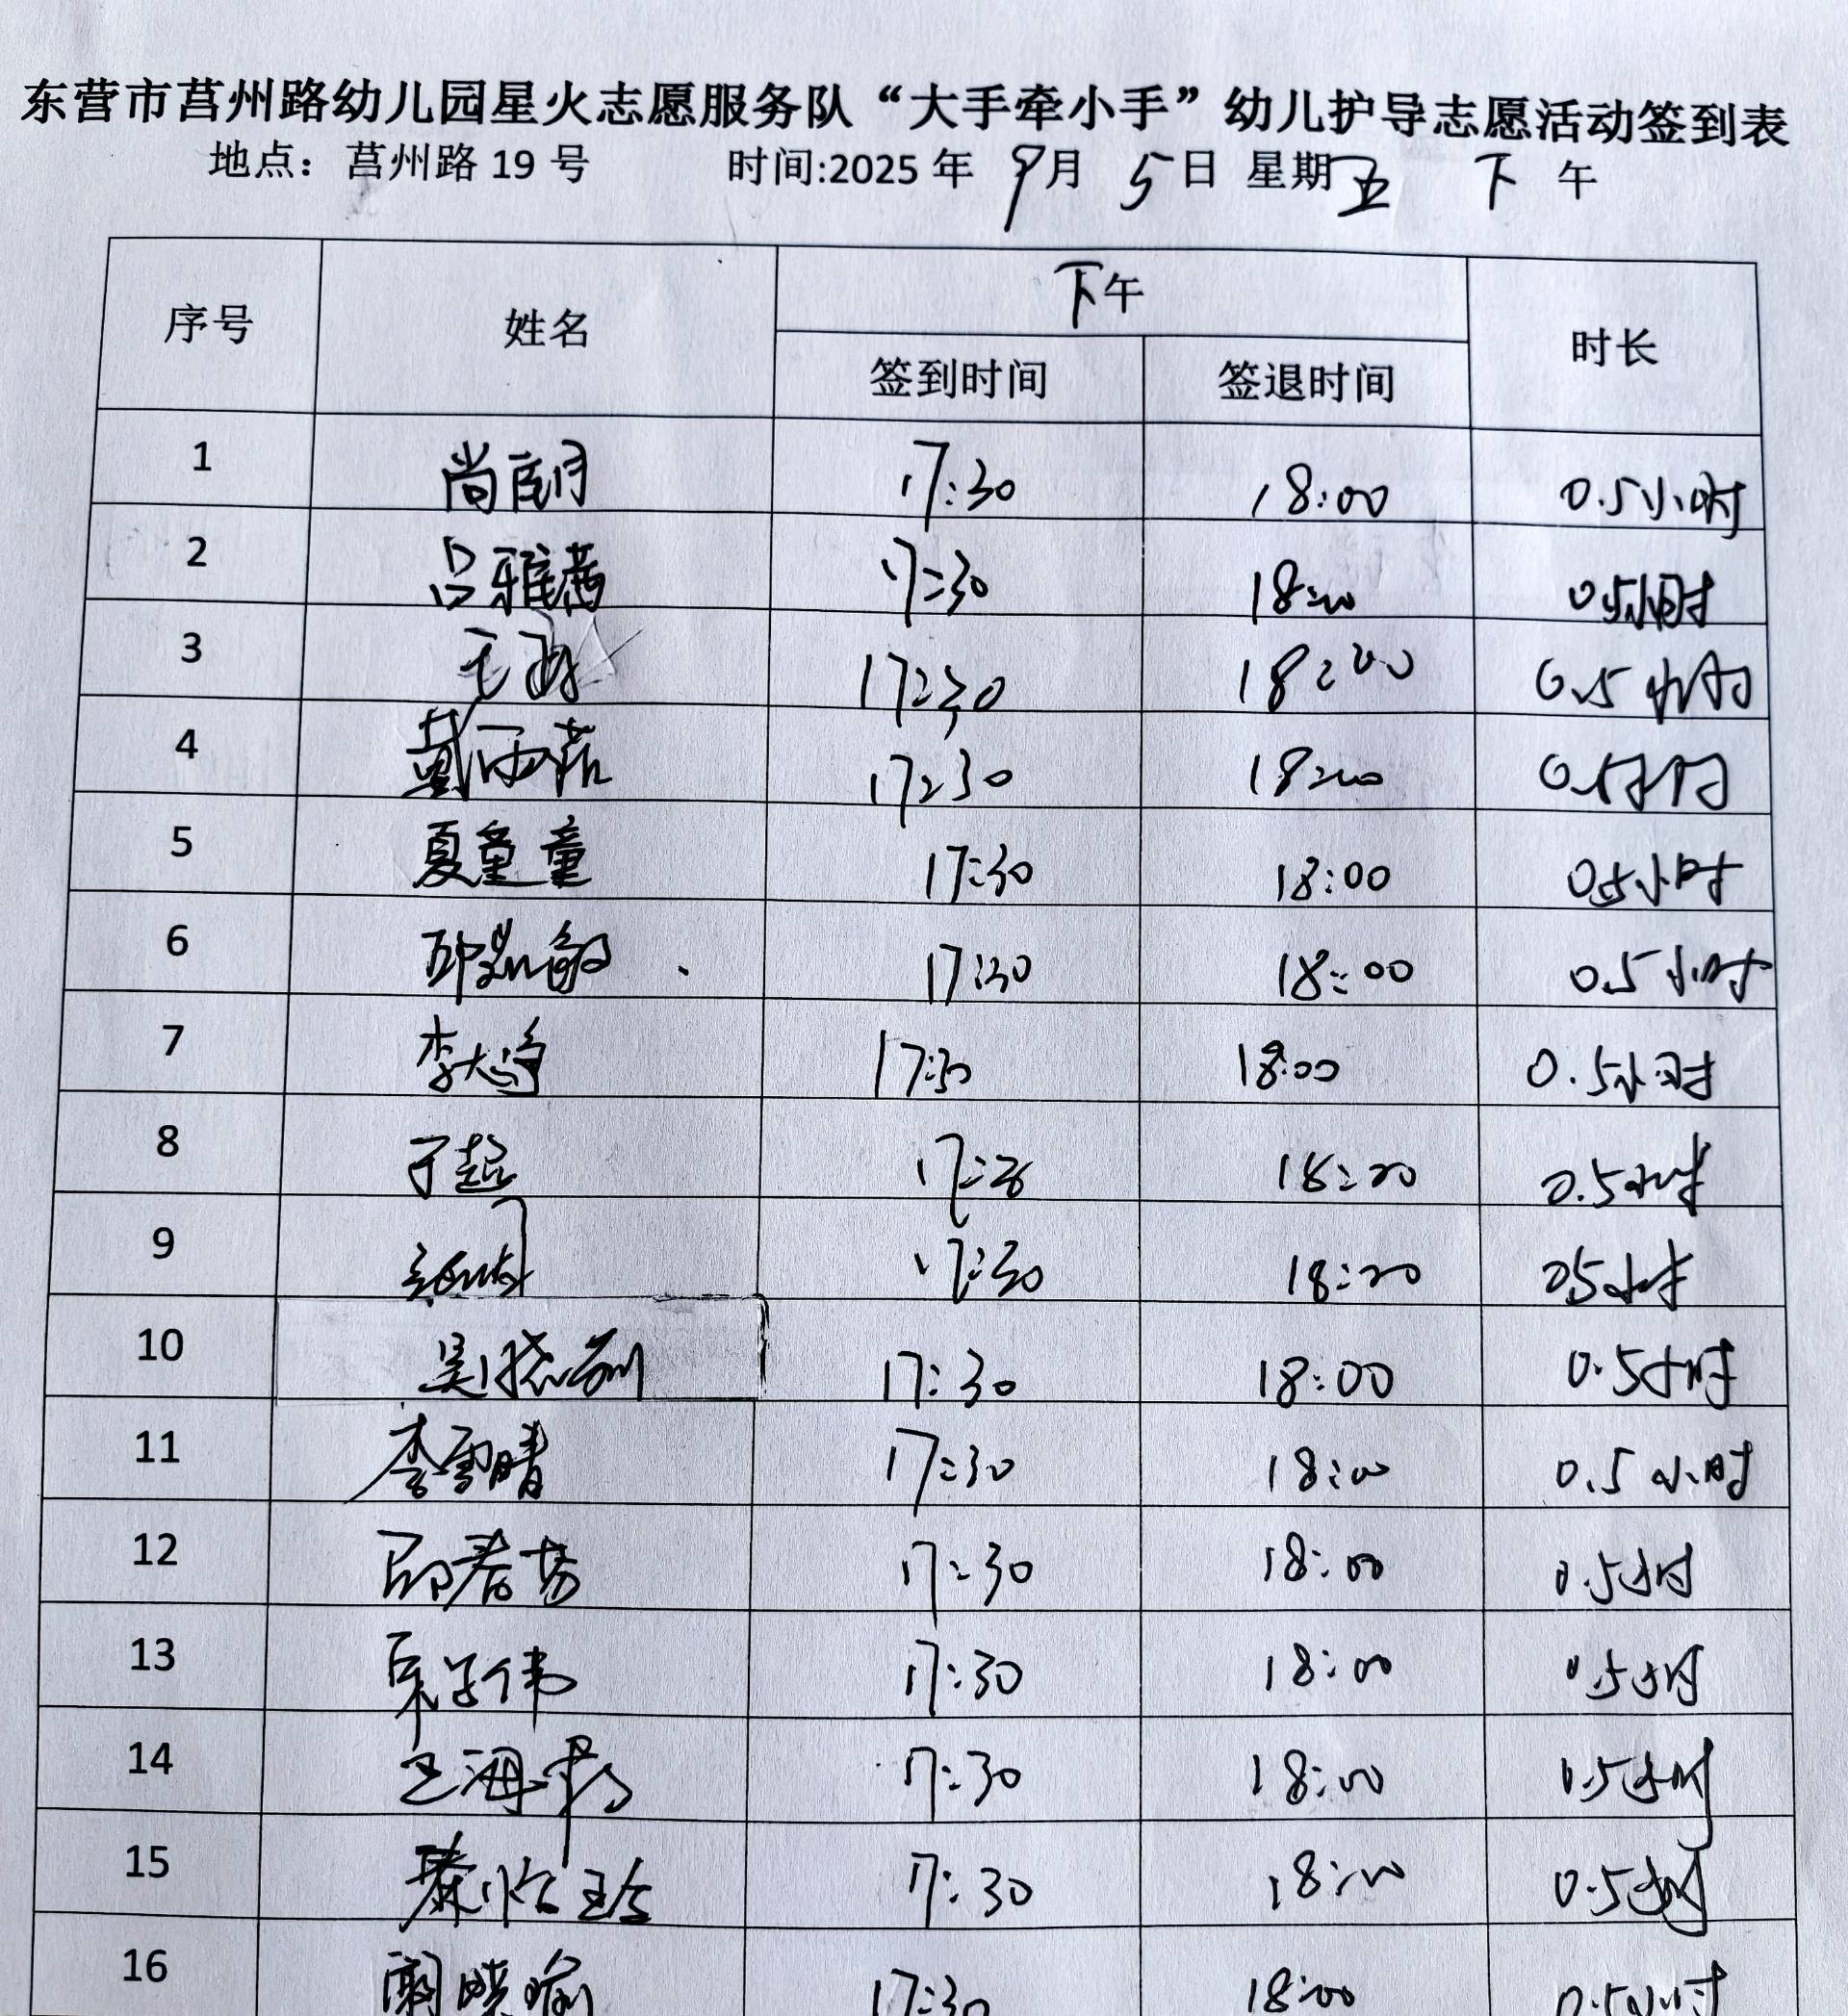 东营市莒州路幼儿园星火志愿服务队“大手牵小手”幼儿护导志愿活动签到表
地点：莒州路 19 号 时间:2025 年 9月 5日 星期五 下 午
序号 姓名 下午 时长
签到时间 签退时间
1 尚 17:30 18:00 0.5小时
2 吕雅茜 17:30 18:00 0.5小时
3 17:30 18:00 0.5小时
4 戴雨 17:30 18:00 0.5小时
5 夏童童 17:30 18:00 0.5小时
6 17:30 18:00 0.5小时
7 李 17:30 18:00 0.5小时
8 于超 17:30 18:00 0.5小时
9 17:30 18:00 0.5小时
10 吴晓 17:30 18:00 0.5小时
11 李雪晴 17:30 18:00 0.5小时
12 17:30 18:00 0.5小时
13 伟 17:30 18:00 0.5小时
14 王海 17:30 18:00 0.5小时
15 17:30 18:00 0.5小时
16 晓瑜 17:30 18:00 0.5小时